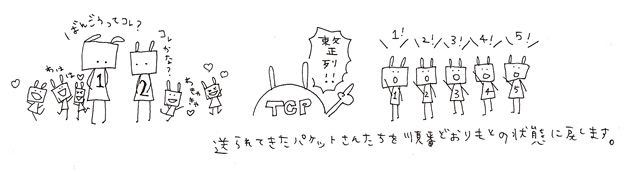 ばんごうってコレ?
コレかなぁ?
わは
は
きゃ
きゃ
1
2
整列!!
TCP
1!
2!
3!
4!
5!
1
2
3
4
5
送られてきたパケットさんたちを順番どおりもとの状態に戻します。